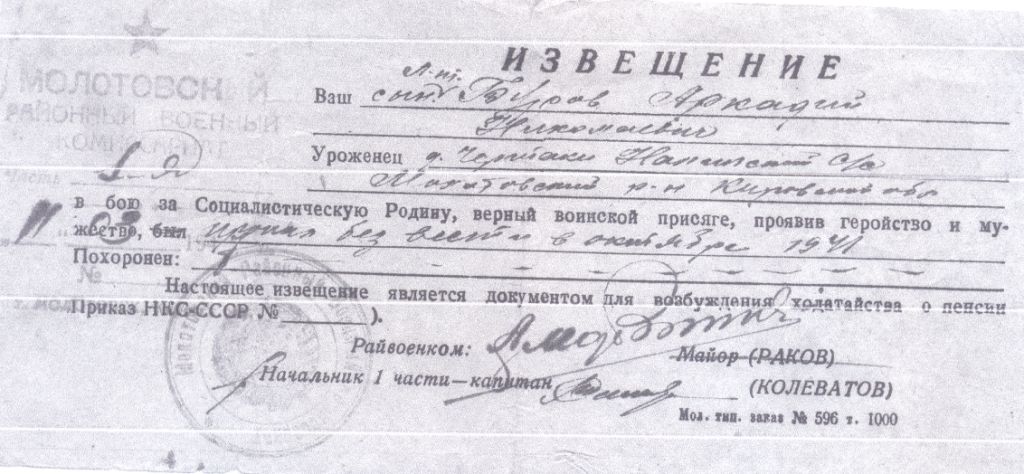 МОЛОТОВСКИЙ
РАЙОННЫЙ ВОЕННЫЙ
КОМИССАРИАТ
Часть 1-я
№
ИЗВЕЩЕНИЕ
Л-т.
Ваш сын Буров Аркадий
Николаевич
Уроженец д. Чертаки с/с
Молотовский р-н Кировской обл
в бою за Социалистическую Родину, верный воинской присяге, проявив геройство и му-
жество, был пропал без вести в октябре 1941
Похоронен:
Настоящее извещение является документом для возбуждения ходатайства о пенсии
Приказ НКС-СССР № ).
Райвоенком:
Майор (РАКОВ)
Начальник 1 части—капитан (КОЛЕВАТОВ)
Мол. тип. заказ № 596 т. 1000